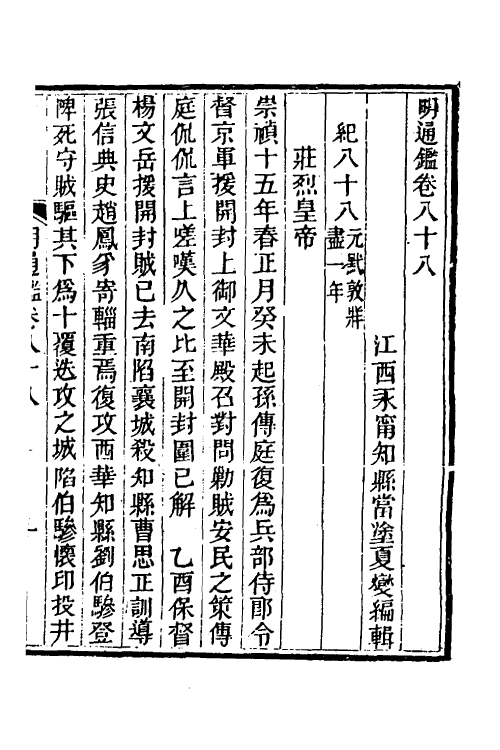 明通鑑卷八十八
江西永甯知縣當塗夏燮編輯
紀八十八元黓敦牂盡一年
莊烈皇帝
崇禎十五年春正月癸未起孫傳庭復爲兵部侍郎令
督京軍援開封上御文華殿召對問勦賊安民之策傳
庭侃侃言上嗟嘆久之比至開封圍已解 乙酉保督
楊文岳援開封賊已去南陷襄城殺知縣曹思正訓導
張信典史趙鳳豸寄輜重焉復攻西華知縣劉伯驂登
陴死守賊驅其下爲十覆迭攻之城陷伯驂懷印投井
明通鑑卷八十八